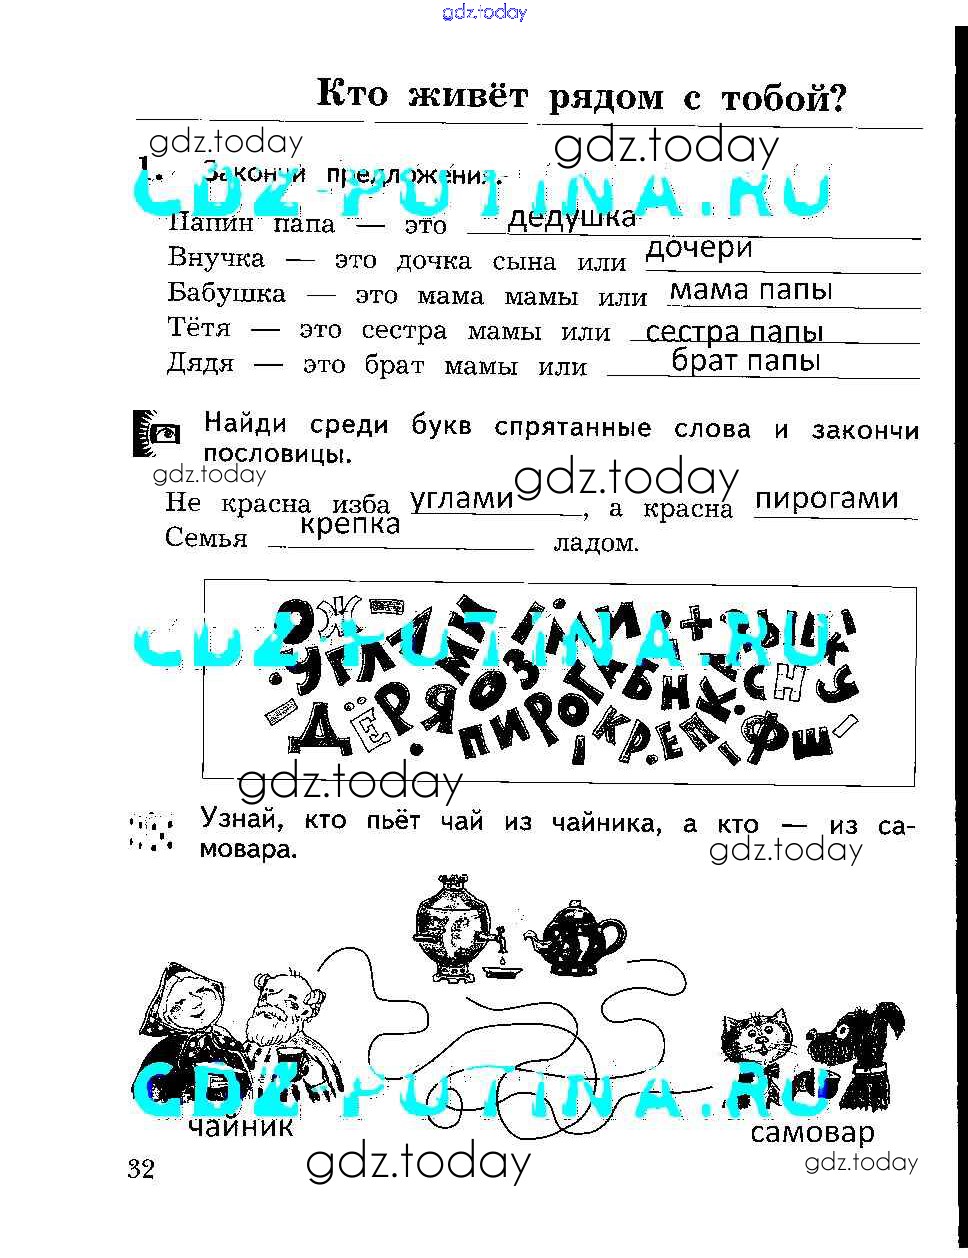 gdz.today
Кто живёт рядом с тобой?
gdz.today gdz.today
1. Закончи предложения.
GDZ-PUTINA.RU
Папин папа — это дедушка
Внучка — это дочка сына или дочери
Бабушка — это мама мамы или мама папы
Тётя — это сестра мамы или сестра папы
Дядя — это брат мамы или брат папы
Найди среди букв спрятанные слова и закончи
пословицы.
gdz.today gdz.today
Не красна изба углами, а красна пирогами
Семья крепка ладом.
GDZ-PUTINA.RU
gdz.today
Узнай, кто пьёт чай из чайника, а кто — из са-
мовара.
gdz.today
GDZ-PUTINA.RU
чайник самовар
32 gdz.today gdz.today